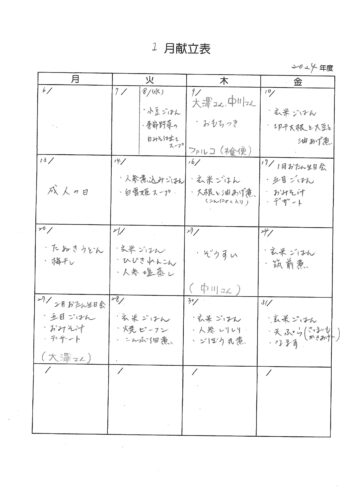 1 月献立表
2024 年度
月 火 木 金
6/
7/
8/(水)
・小豆ごはん
・季節野菜の
スープ
9/
大澤さん 中川さん
・おもちつき
ファルコ(検便)
10/
・玄米ごはん
・切干大根と大豆と
油あげ煮
13/
成人の日
14/
・人参炊込みごはん
・白雪姫スープ
16/
・玄米ごはん
・大根と油あげ煮
17/ 1月お誕生日会
・五目ごはん
・おみそ汁
・デザート
20/
・たぬきうどん
・梅干し
21/
・玄米ごはん
・ひじきれんこん
・人参塩蒸し
23/
・ぞうすい
(中川さん)
24/
・玄米ごはん
・筑前煮
27/ 2月お誕生日会
・五目ごはん
・おみそ汁
・デザート
(大澤さん)
28/
・玄米ごはん
・焼ビーフン
・こんぶ佃煮
30/
・玄米ごはん
・人参しりしり
・ごぼう煮
31/
・玄米ごはん
・天ぷら(さつまいも
かきあげ)
・なます
/
/
/
/